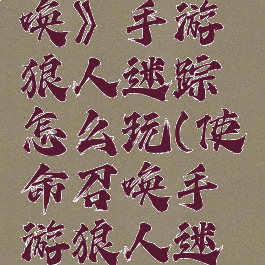 唤》手游
狼人迷踪
怎么玩(使
命召唤手
游狼人迷